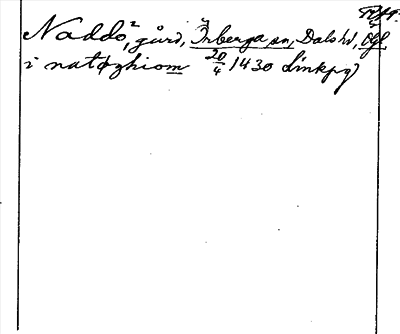 Naddo,² gård, Örberga sn, Dals hd, Ögl.
i natøghiom 20/4 1430 Linkpg